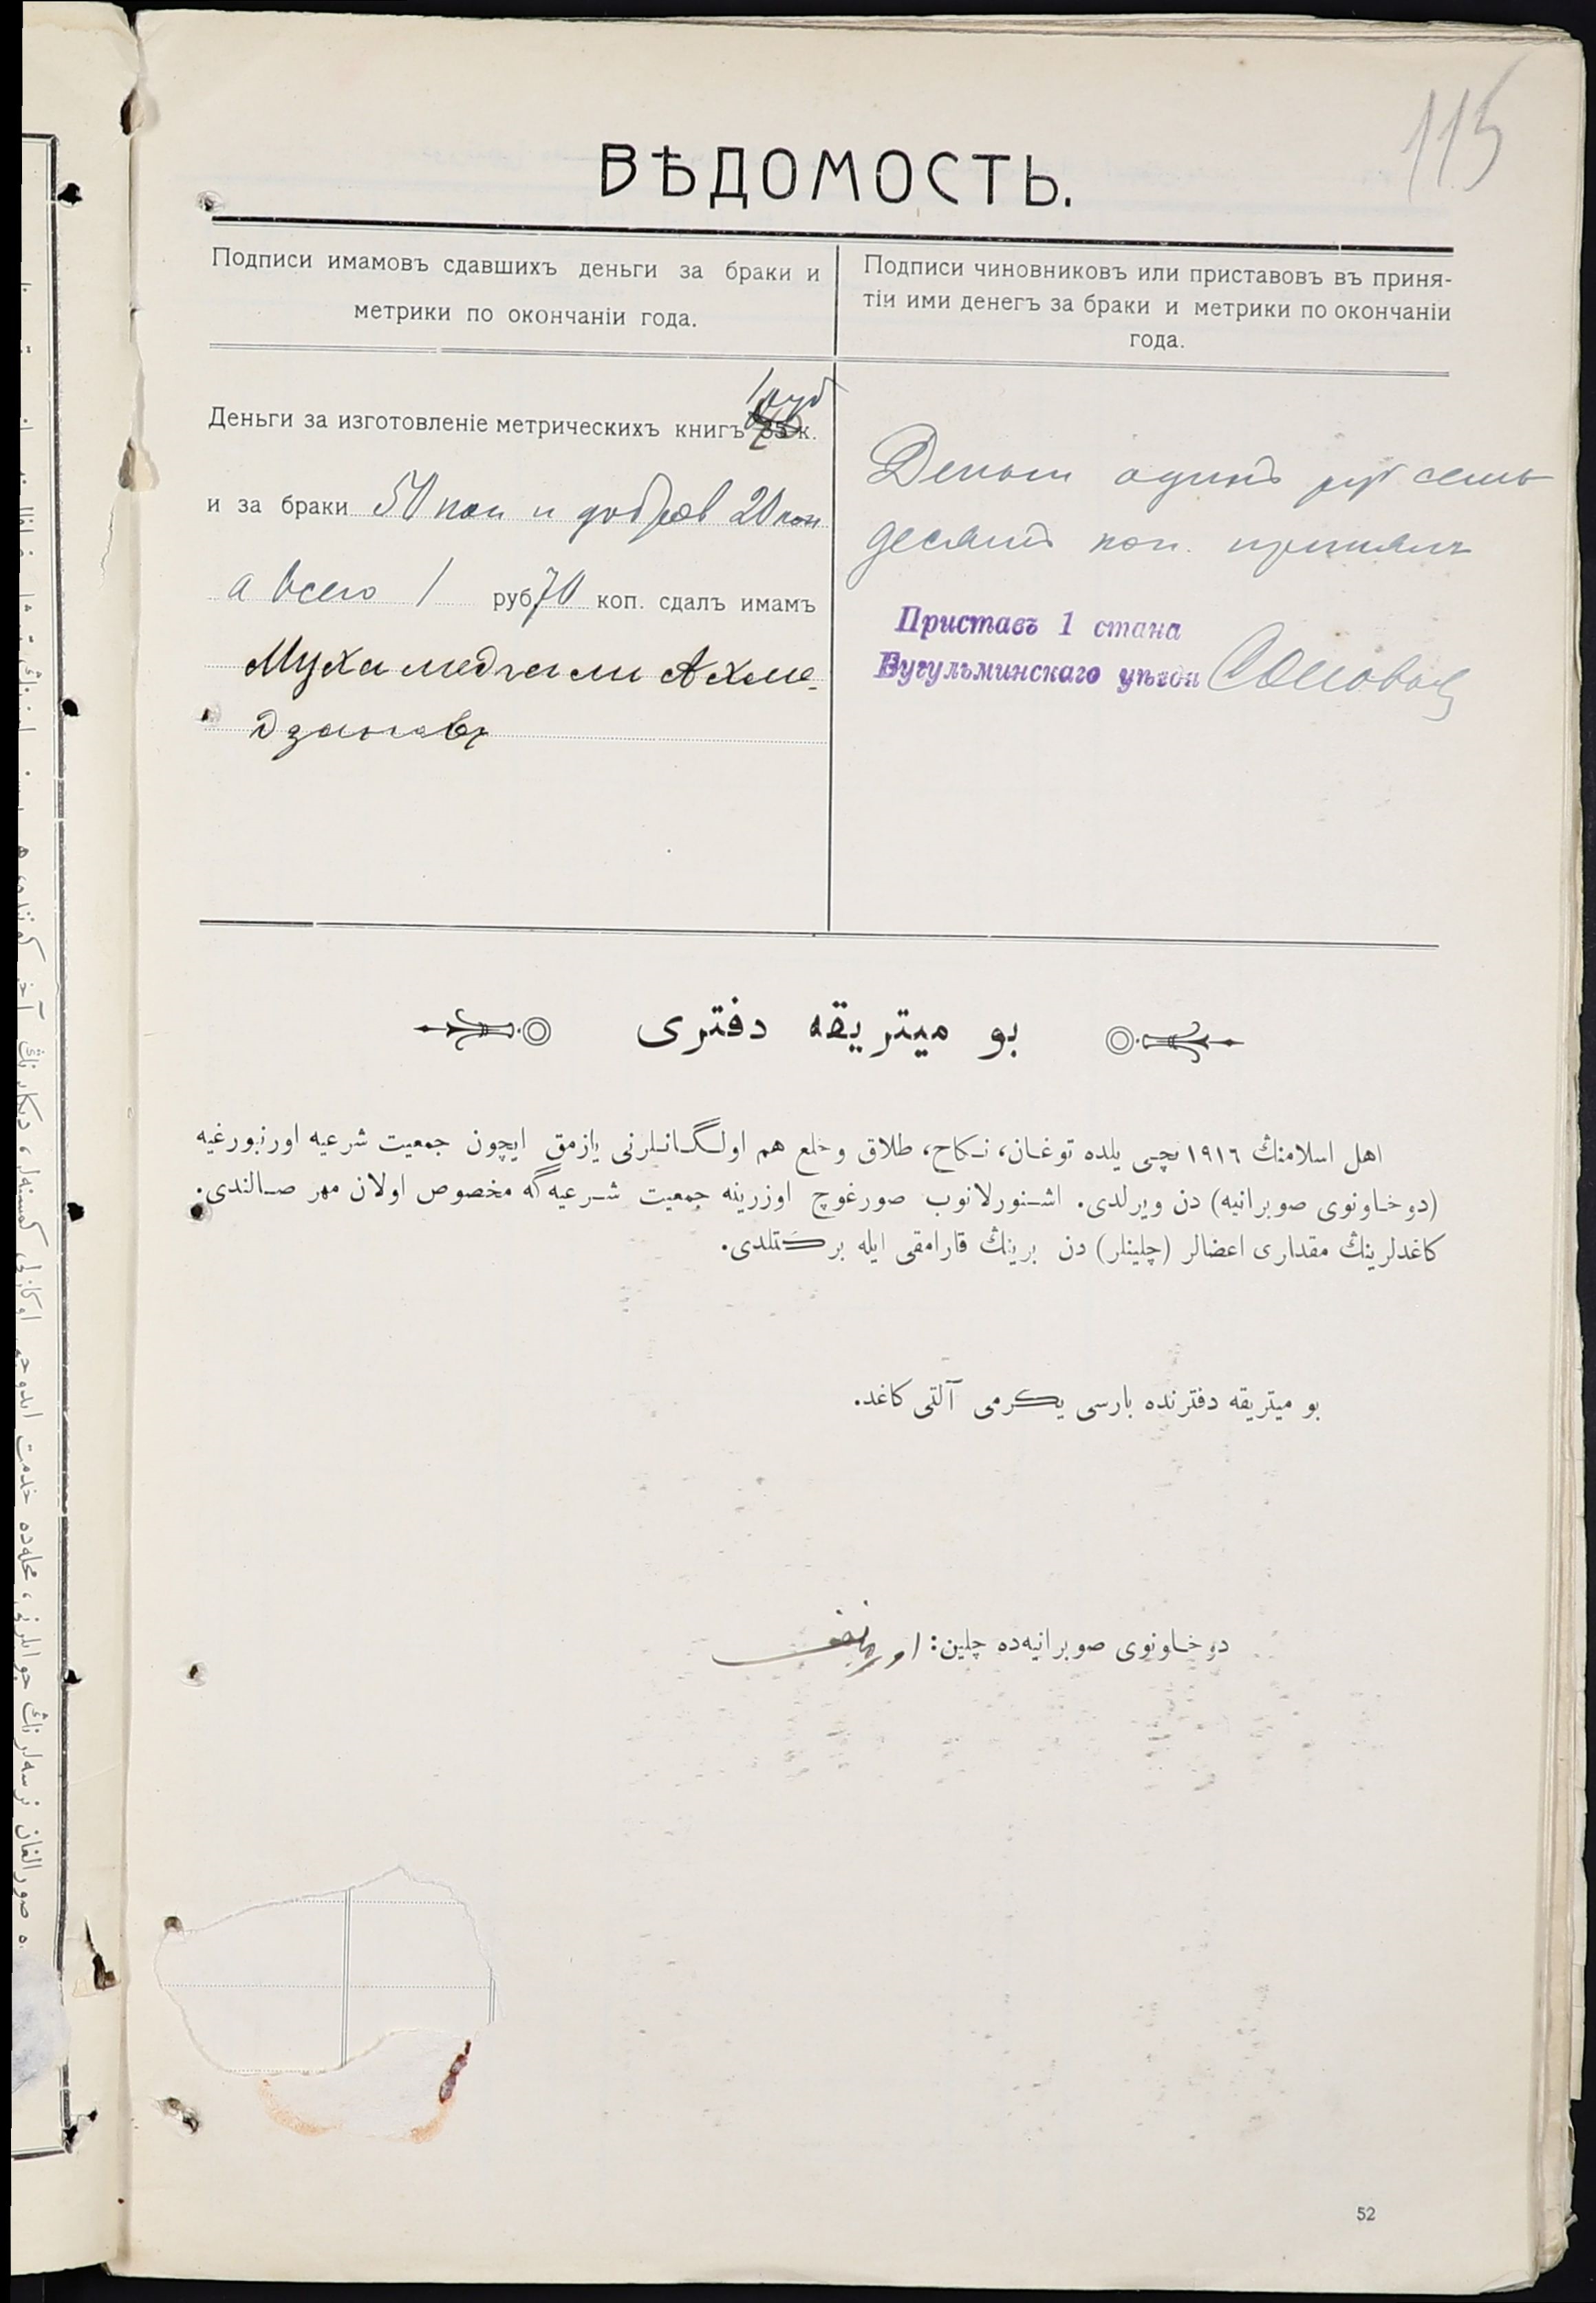 115
ВѢДОМОСТЬ.
Подписи имамовъ сдавшихъ деньги за браки и
метрики по окончаніи года.
Подписи чиновниковъ или приставовъ въ приня-
тіи ими денегъ за браки и метрики по окончаніи
года.
1 руб
Деньги за изготовленіе метрическихъ книгъ 35 к.
и за браки 50 коп и добров 20 коп
а всего 1 руб. 70 коп. сдалъ имамъ
Мухамедгали Ахме-
дзяновъ
Деньги одинъ руб семь
десятъ коп. принялъ
Приставъ 1 стана
Бугульминскаго уѣзда
بو ميتريقه دفترى
اهل اسلامنڭ ١٩١٦ نچـى يلده توغـان، نـكاح، طلاق وخلع هم اولـگـانـلرنى يازمق ايچون جمعيت شرعيه اورنبورغيه
(دوخـاونوى صوبرانيه) دن ويرلدى. اشـنورلانوب صورغوچ اوزرينه جمعيت شـرعيه‌گه مخصوص اولان مهر صـالندى.
كاغدلرينڭ مقدارى اعضالر (چلينلر) دن برينڭ قارامقى ايله بركتلدى.
بو ميتريقه دفترنده بارسى يكرمى آلتى كاغد.
دوخـاونوى صوبرانيه‌ده چلين:
52